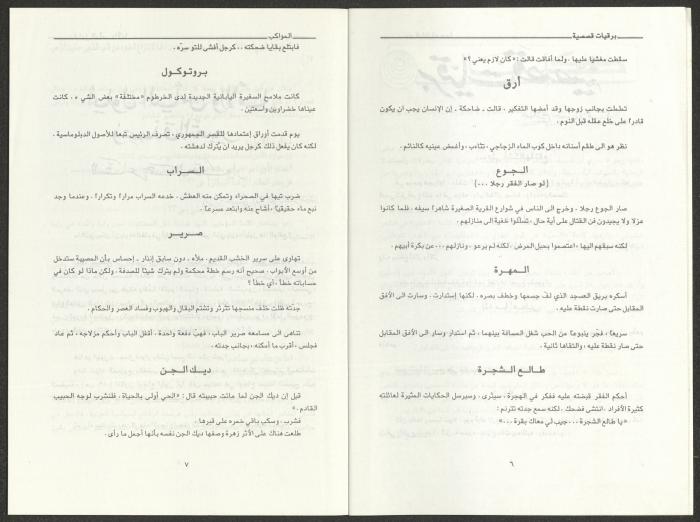 برقيات قصصية
سقطت مغشيا عليها . ولما أفاقت قالت : «كان لازم يعني ؟»
أرق
تططت بجانب زوجها وقد أمضها التفكير . قالت ـ ضاحكة ـ إن الإنسان يجب ان يكون
قادرا على خلع عقله قبل النوم .
نظر هو الى طقم أسنانه داخل كوب الماء الزجاجي ، تثاءب ، وأغمض عينيه كالنائم .
الجوع
(لو صار الفقر رجلا ...)
صار الجوع رجلا . وخرج الى الناس في شوارع القرية الصغيرة شاهرا سيفه . فلما كانوا
عزلا ولا يجيدون فن القتال على أية حال ، تسللوا خفية الى منازلهم .
لكنه سبقهم اليها ، اعتصموا بحبل المرض . لكنه لم يرعو . ونازلهم ... عن بكرة أبيهم .
المهرة
أسكره بريق العسجد الذي لف جسمها وخطف بصره . لكنها إستدارت . وسارت الى الأفق
المقابل حتى صارت نقطة عليه .
سريعا ، فجر ينبوعا من الحب شغل المسافة بينهما ، ثم استدار وسار الى الأفق المقابل
حتى صار نقطة عليه . والتقاها ثانية .
طالع الشجرة
أحكم الفقر قبضته عليه ففكر في الهجرة . سيثرى . وسيرسل الحكايات المثيرة لعائلته
كثيرة الأفراد . انتشى فضحك . لكنه سمع جدته تترنم :
«يا طالع الشجرة ... جيب لي معاك بقرة ...»
٦
المواكب
فابتلع بقايا ضحكته .. كرجل أفشى للتو سره .
بروتوكول
كانت ملامح السفيرة اليابانية الجديدة لدى الخرطوم «مختلفة» بعض الشيء . كانت
عيناها خضراوين واسعتين .
يوم قدمت أوراق إعتمادها للقصر الجمهوري . تصرف الرئيس تبعا للأصول الدبلوماسية .
لكنه كان يفعل ذلك كرجل يريد ان يُترك لدهشته .
السراب
ضرب تيها في الصحراء وتمكن منه العطش . خدعه السراب مرارا وتكرارا . وعندما وجد
نبع ماء حقيقيا ، أشاح عنه وابتعد مسرعا .
صرير
تهاوى على سرير الخشب القديم . ملأه ـ دون سابق إنذار ـ إحساس بأن المصيبة ستدخل
من أوسع الأبواب . صحيح أنه رسم خطة محكمة ولم يترك شيئا للصدفة . ولكن ماذا لو كان في
حساباته خطأ ، أي خطأ ؟
جدته ظلت خلف منسجها تثرثر وتشتم البقال والهبوب وفساد العصر والحكام .
تناهى الى مسامعه صرير الباب . فهب دفعة واحدة . أقفل الباب وأحكم مزلاجه . ثم عاد
فجلس . أقرب ما أمكنه ، بجانب جدته .
ديك الجن
قيل إن ديك الجن لما ماتت حبيبته قال : «الحي أولى بالحياة . فلنشرب لوجه الحبيب
القادم .»
فشرب . وسكب باقي خمره على قبرها .
طلعت هناك على الأثر زهرة وصفها ديك الجن نفسه بأنها أجمل ما رأى .
٧